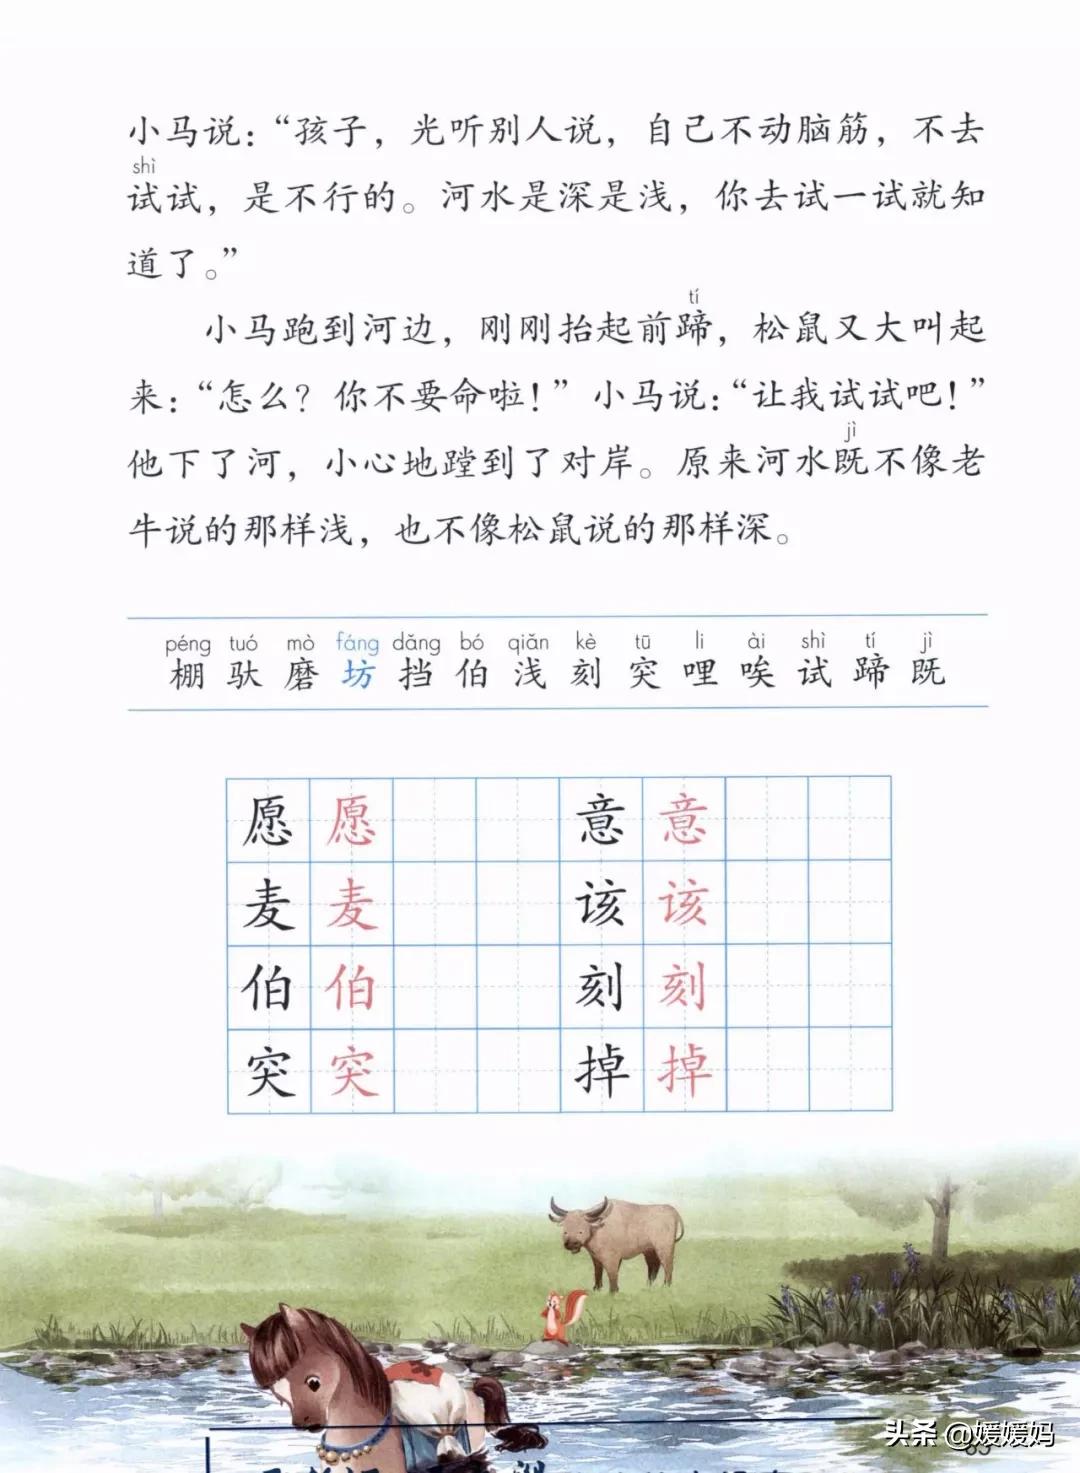 小马说：“孩子，光听别人说，自己不动脑筋，不去
shì
试试，是不行的。河水是深是浅，你去试一试就知
道了。”
tí
小马跑到河边，刚刚抬起前蹄，松鼠又大叫起
来：“怎么？你不要命啦！” 小马说：“让我试试吧！”
jì
他下了河，小心地蹚到了对岸。原来河水既不像老
牛说的那样浅，也不像松鼠说的那样深。
péng tuó mò fáng dǎng bó qiǎn kè tū li ài shì tí jì
棚 驮 磨 坊 挡 伯 浅 刻 突 哩 唉 试 蹄 既
愿 愿 意 意
麦 麦 该 该
伯 伯 刻 刻
突 突 掉 掉
头条 @媛媛妈